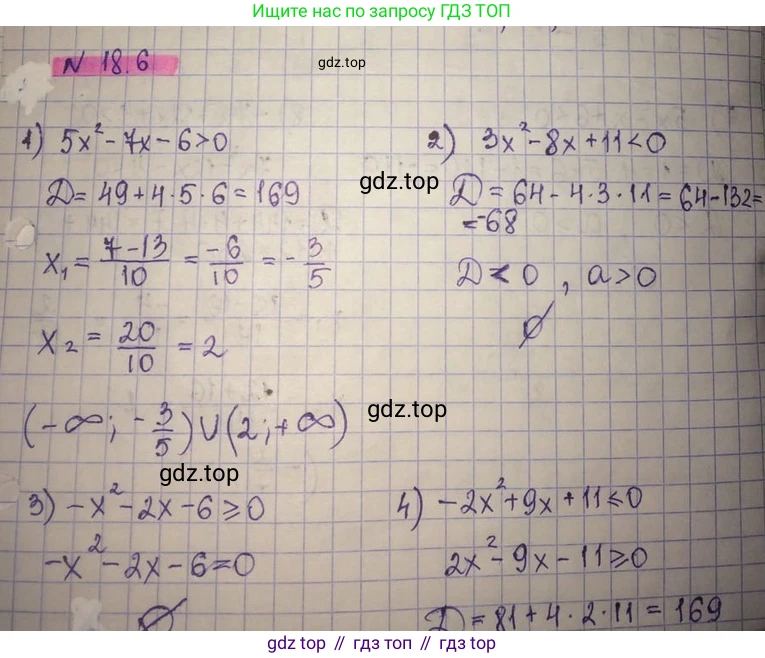 Ищите нас по запросу ГДЗ ТОП
N 18.6
gdz.top
1) 5x² - 7x - 6 > 0
D = 49 + 4·5·6 = 169
x₁ = (7-13)/10 = -6/10 = -3/5
x₂ = 20/10 = 2
(-∞; -3/5) ∪ (2; +∞)
2) 3x² - 8x + 11 < 0
gdz.top
D = 64 - 4·3·11 = 64 - 132 =
= -68
D < 0, a > 0
∅
gdz.top
gdz.top
3) -x² - 2x - 6 ≥ 0
-x² - 2x - 6 = 0
∅
4) -2x² + 9x + 11 ≤ 0
2x² - 9x - 11 ≥ 0
D = 81 + 4·2·11 = 169
gdz.top // гдз топ // gdz.top